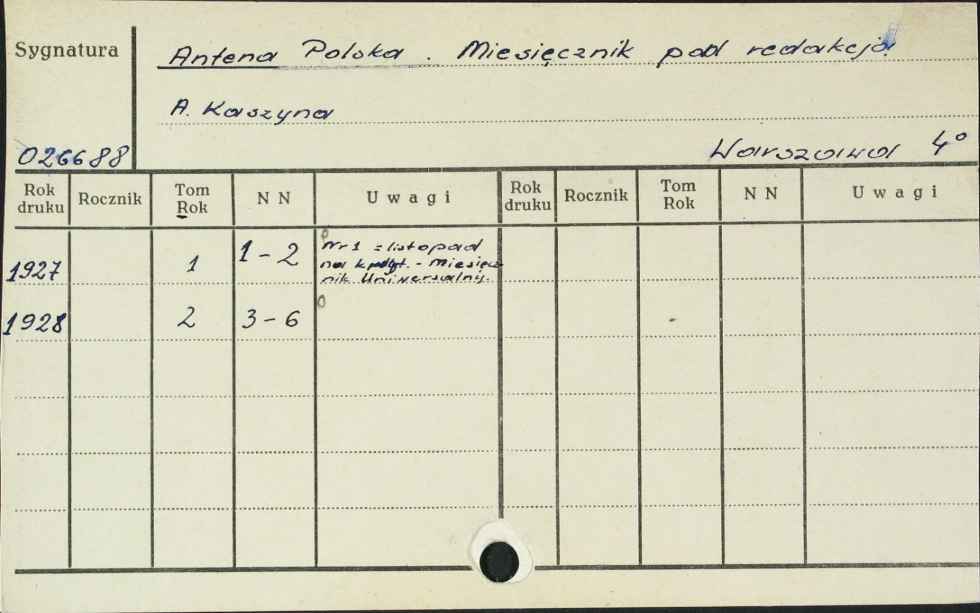 Sygnatura
Antena Polska. Miesięcznik pod redakcją
A. Kaszyna
026688
Warszawa 4°
Rok druku Rocznik Tom Rok N N Uwagi Rok druku Rocznik Tom Rok N N Uwagi
1927 1 1-2 Nr 1 = listopad
na - Miesięcz-
nik Uniwersalny.
1928 2 3-6